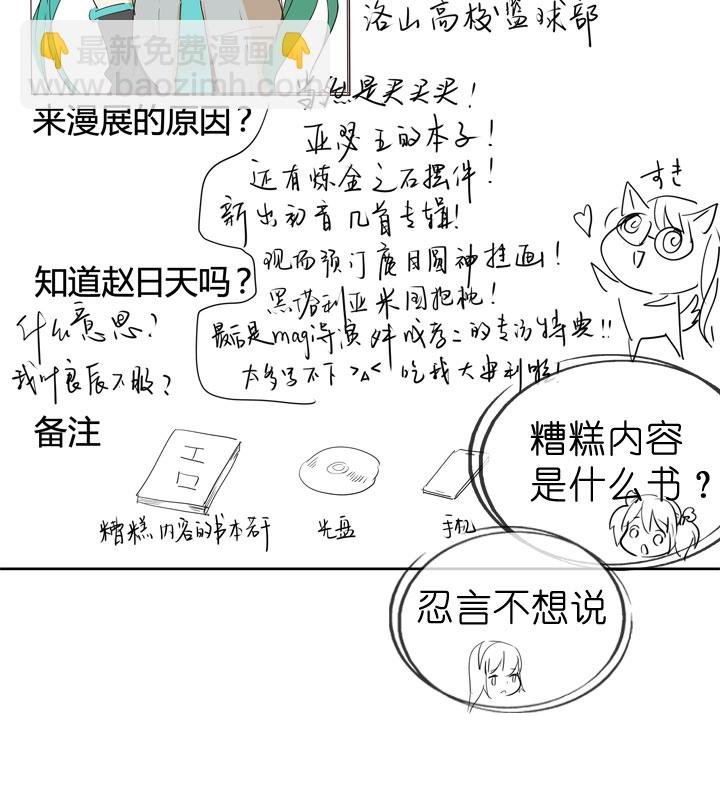 洛山高校篮球部
最新免费漫画
www.baozimh.com
来漫展的原因？
当然是买买买！
亚瑟王的本子！
还有炼金之石摆件！
新出初音几首专辑！
现场预订鹿目圆神挂画！
黑塔利亚米国抱枕！
最后是mag导演
的专访特典!!
太多写不下>△<
吃我大安利啦！
すき
知道赵日天吗？
什么意思？
我叶良辰不服？
备注
エロ
糟糕内容的书本若干
光盘
手机
糟糕内容
是什么书？
忍言不想说